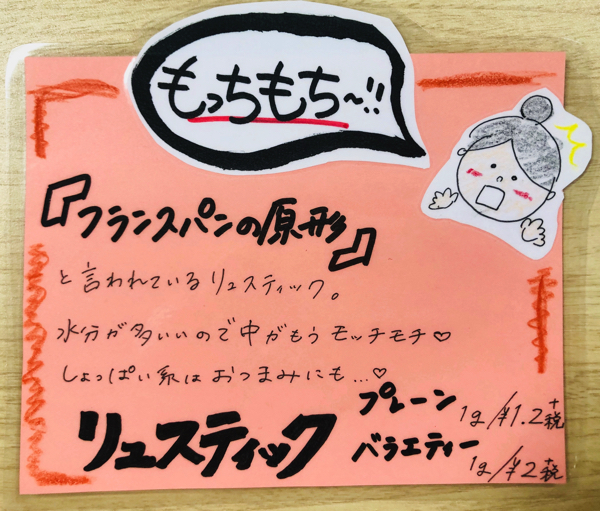 もっちもち〜!!
『フランスパンの原形』
と言われているリュスティック。
水分が多いいので中がもうモッチモチ♡
しょっぱい系はおつまみにも…♡
リュスティック
プレーン 1g/¥1.2+税
バラエティー 1g/¥2+税